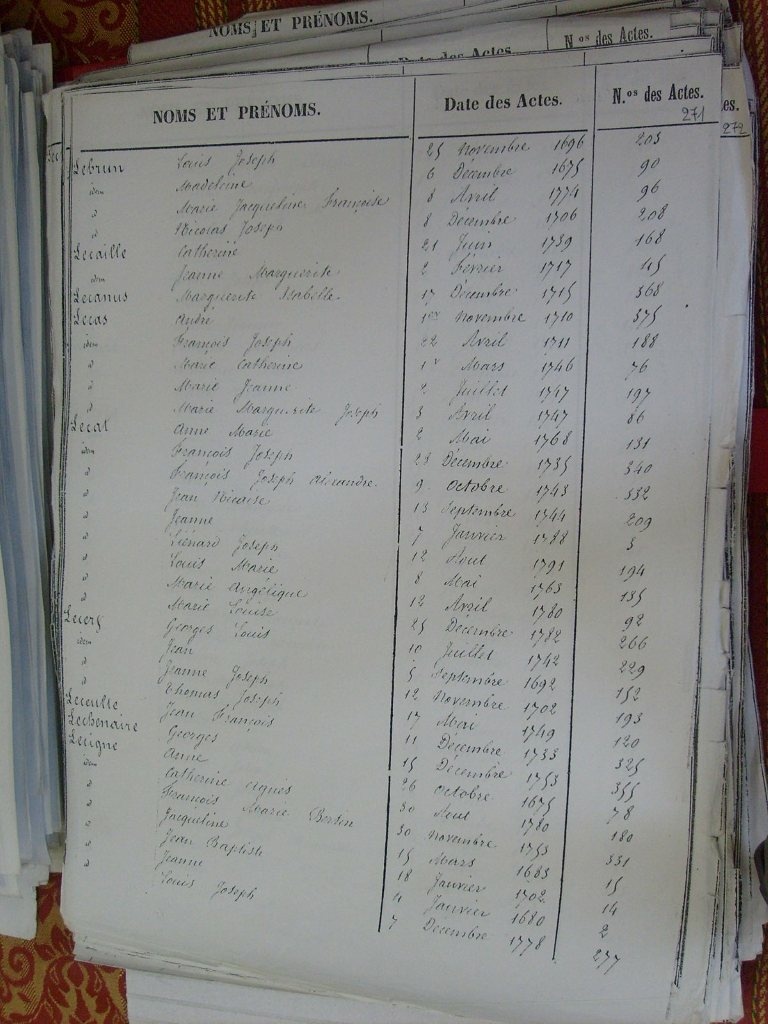 NOMS ET PRÉNOMS.
N.os des Actes.
NOMS ET PRÉNOMS. Date des Actes. N.os des Actes.
271
272
Lebrun Louis Joseph 25 Novembre 1696 203
idem Madeleine 6 Décembre 1675 90
d Marie Jacqueline Françoise 8 Avril 1774 96
d Nicolas Joseph 8 Décembre 1706 208
Lecaille Catherine 21 Juin 1739 168
idem Jeanne Marguerite 2 Février 1717 45
Lecanus Marguerite Isabelle 17 Décembre 1715 368
Lecas André 1er Novembre 1710 375
idem François Joseph 22 Avril 1711 188
d Marie Catherine 1r Mars 1746 76
d Marie Jeanne 2 Juillet 1747 197
d Marie Marguerite Joseph 3 Avril 1747 86
Lecat Anne Marie 2 Mai 1768 131
idem François Joseph 28 Décembre 1735 340
d François Joseph Alexandre 9 Octobre 1743 332
d Jean Nicaise 13 Septembre 1744 209
d Jeanne 7 Janvier 1788 3
d Liénard Joseph 12 Aout 1791 194
d Louis Marie 8 Mai 1763 135
d Marie Angélique 12 Avril 1780 92
d Marie Louise 25 Décembre 1782 266
Georges Louis 10 Juillet 1742 229
idem Jean 5 Septembre 1692 152
d Jeanne Joseph 12 Novembre 1702 193
d Thomas Joseph 17 Mai 1749 120
Jean François 11 Décembre 1733 325
Lechenaire Georges 15 Décembre 1753 355
Anne 26 Octobre 1675 78
idem Catherine Agnès 30 Aout 1780 180
d François Marie 30 Novembre 1753 331
d Jacqueline 15 Mars 1683 15
d Jean Baptiste 18 Janvier 1702 14
d Jeanne 4 Janvier 1680 2
d Louis Joseph 7 Décembre 1778 277